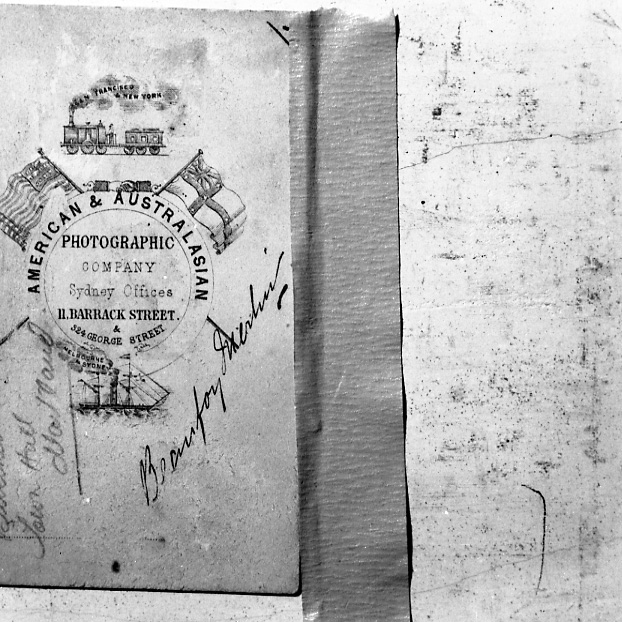 SAN FRANCISCO
& NEW YORK
AMERICAN & AUSTRALASIAN
PHOTOGRAPHIC
COMPANY
Sydney Offices
11. BARRACK STREET.
&
324 GEORGE STREET
MELBOURNE
& SYDNEY
Beaufoy Merlin
Town Hall